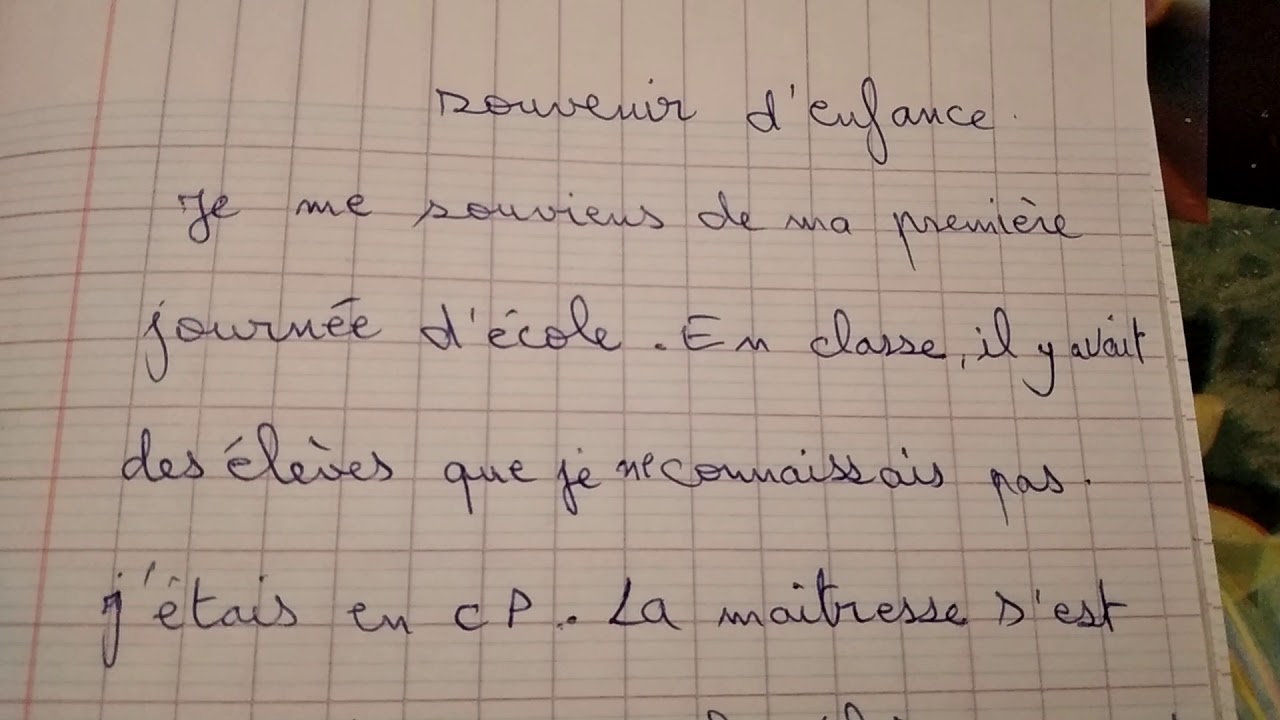 souvenir d'enfance.
Je me souviens de ma première
journée d'école. En classe, il y avait
des élèves que je ne connaissais pas.
j'étais en CP. La maîtresse s'est